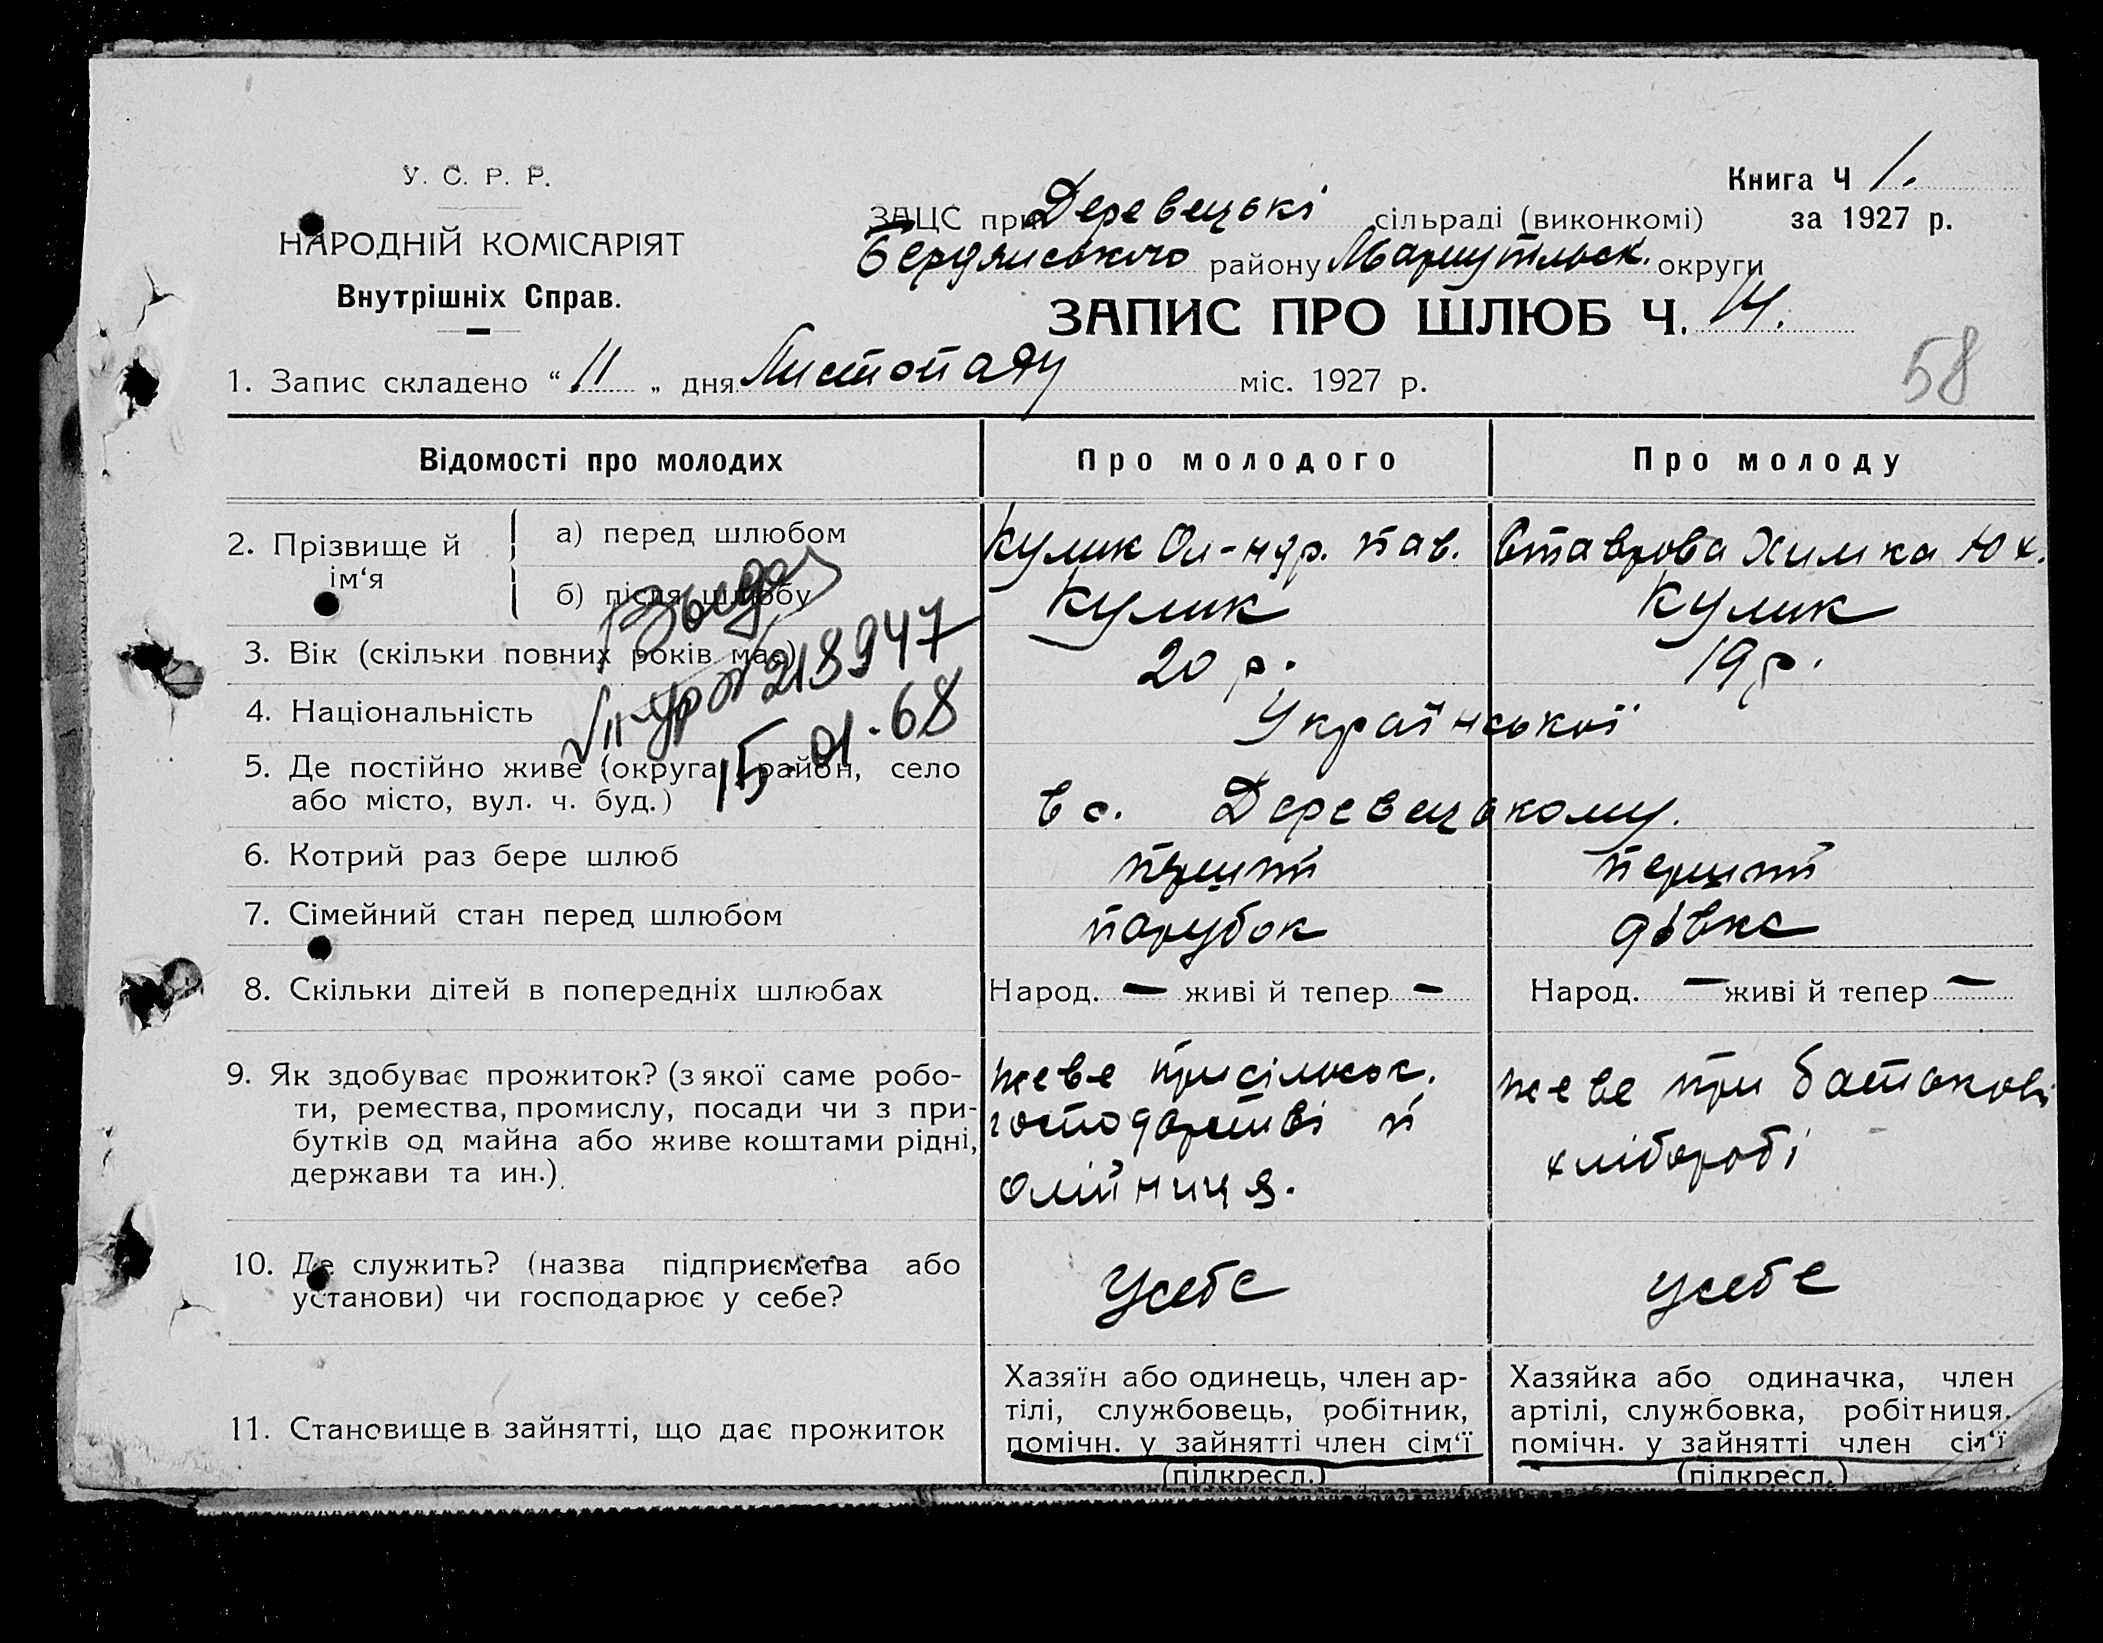 У. С. Р. Р.
НАРОДНІЙ КОМІСАРІЯТ
Внутрішніх Справ.
Книга Ч 1.
за 1927 р.
ЗАЦС при Деревецькі сільраді (виконкомі)
Бердянського району Маріупільськ. округи
ЗАПИС ПРО ШЛЮБ Ч. 14.
58
1. Запис складено “ 11 „ дня Листопаду міс. 1927 р.
Відомості про молодих
Про молодого
Про молоду
2. Прізвище й ім‘я
а) перед шлюбом
Кулик Ол-ндр. Пав.
Ставрова Химка Юх.
б) після шлюбу
Кулик
Кулик
3. Вік (скільки повних років має)
20 р.
19 р.
218947
15.01.68
4. Національність
Української
5. Де постійно живе (округа, район, село
або місто, вул. ч. буд.)
в с. Деревецькому.
6. Котрий раз бере шлюб
перший
перший
7. Сімейний стан перед шлюбом
парубок
дівка
8. Скільки дітей в попередніх шлюбах
Народ. — живі й тепер —
Народ. — живі й тепер —
9. Як здобуває прожиток? (з якої саме робо-
ти, ремества, промислу, посади чи з при-
бутків од майна або живе коштами рідні,
держави та ин.).
жеве при сільськ.
господарстві й
олійниця.
жеве при батькові
хліборобі
10. Де служить? (назва підприємства або
установи) чи господарює у себе?
у себе
у себе
11. Становище в зайнятті, що дає прожиток
Хазяїн або одинець, член ар-
тілі, службовець, робітник,
помічн. у зайнятті член сім‘ї
(підкресл.)
Хазяйка або одиначка, член
артілі, службовка, робітниця,
помічн. у зайнятті член сім‘ї
(підкресл.)